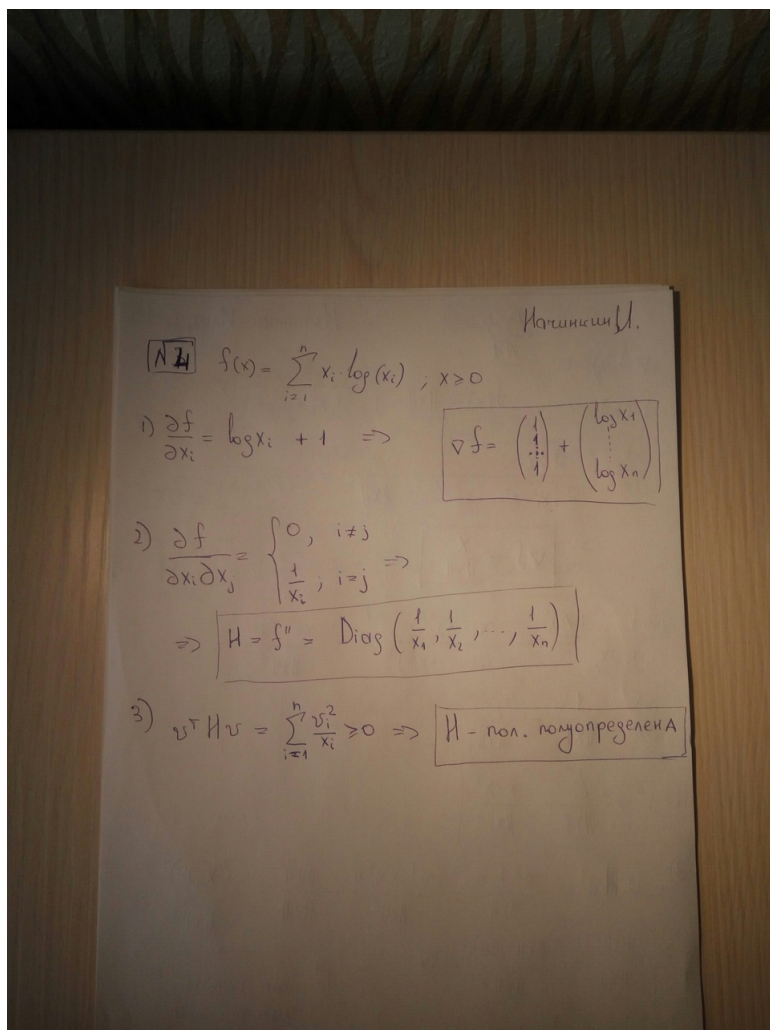 Начинкин И.
№4 f(x) = ∑_{i=1}^{n} x_i · log(x_i) ; x ≥ 0
1) ∂f/∂x_i = log x_i + 1 ⇒ ∇f = (1 1 ⋮ 1) + (log x_1 ⋮ log x_n)
2) ∂f/∂x_i∂x_j = { 0, i ≠ j
1/x_i ; i = j ⇒
⇒ H = f'' = Diag (1/x_1, 1/x_2, ..., 1/x_n)
3) v^T H v = ∑_{i=1}^{n} v_i^2/x_i ≥ 0 ⇒ H - пол. полуопределенА